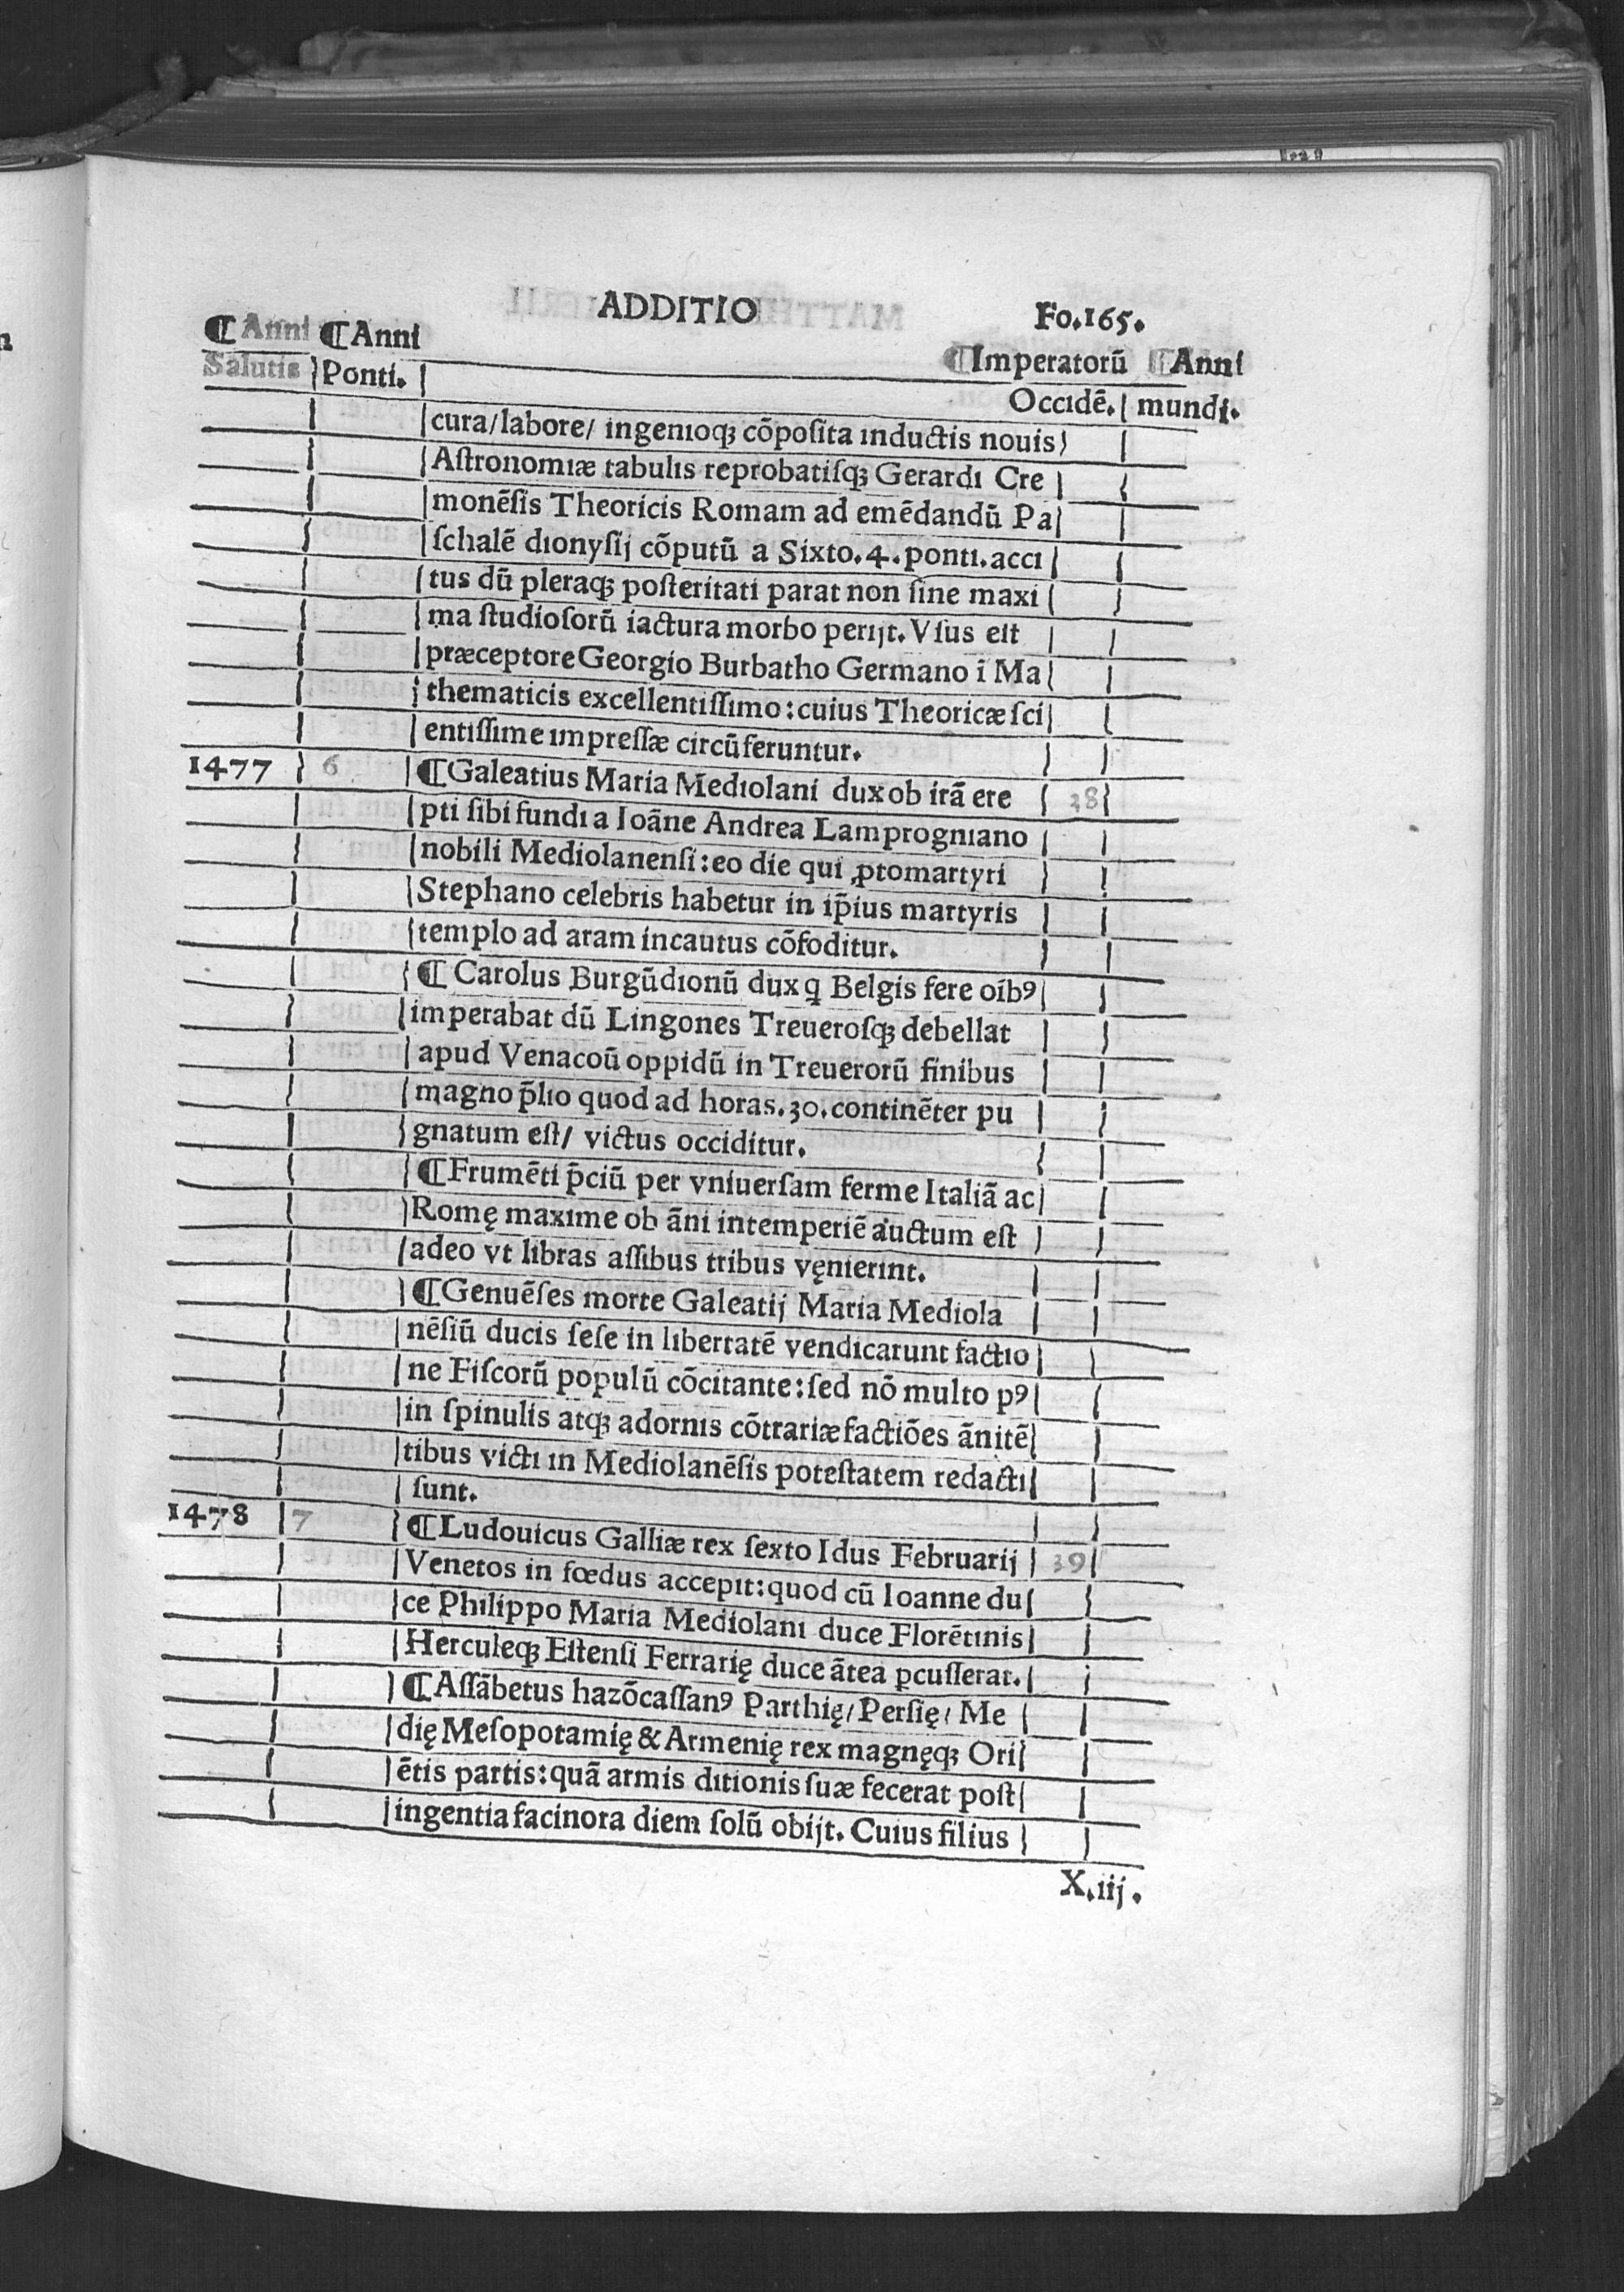 ADDITIO Fo.165.
¶Anni ¶Anni ¶Imperatorū ¶Anni
Salutis Ponti. Occidē. mundi.
cura/labore/ ingenioqꝫ cōposita inductis nouis
Aſtronomiæ tabulis reprobatiſqꝫ Gerardi Cre
monēſis Theoricis Romam ad emēdandū Pa
ſchalē dionyſij cōputū a Sixto.4.ponti.acci
tus dū pleraqꝫ poſteritati parat non ſine maxi
ma ſtudioſorū iactura morbo perijt.Vſus eſt
præceptore Georgio Burbatho Germano ī Ma
thematicis excellentiſſimo:cuius Theoricæ ſci
entiſſime impreſſæ circūferuntur.
1477 6 ¶Galeatius Maria Mediolani dux ob irā ere 38
pti ſibi fundi a Ioāne Andrea Lamprogniano
nobili Mediolanenſi:eo die qui ꝓtomartyri
Stephano celebris habetur in ip̄ius martyris
templo ad aram incautus cōfoditur.
¶Carolus Burgūdionū dux q Belgis fere oībꝰ
imperabat dū Lingones Treueroſqꝫ debellat
apud Venacoū oppidū in Treuerorū finibus
magno p̄lio quod ad horas.30.continēter pu
gnatum eſt/ victus occiditur.
¶Frumēti p̄ciū per vniuerſam ferme Italiā ac
Romę maxime ob āni intemperiē auctum eſt
adeo vt libras aſſibus tribus vęnierint.
¶Genuēſes morte Galeatij Maria Mediola
nēſiū ducis ſeſe in libertatē vendicarunt factio
ne Fiſcorū populū cōcitante:ſed nō multo pꝰ
in ſpinulis atqꝫ adornis cōtrariæ factiōes ānitē
tibus victi in Mediolanēſis poteſtatem redacti
ſunt.
1478 7 ¶Ludouicus Galliæ rex ſexto Idus Februarij 39
Venetos in fœdus accepit:quod cū Ioanne du
ce Philippo Maria Mediolani duce Florētinis
Herculeqꝫ Eſtenſi Ferrarię duce ātea ꝑcuſſerat.
¶Aſſābetus hazōcaſſanꝰ Parthię/Perſię/ Me
dię Meſopotamię & Armenię rex magnęqꝫ Ori
ētis partis:quā armis ditionis ſuæ fecerat poſt
ingentia facinora diem ſolū obijt.Cuius filius
X.iij.